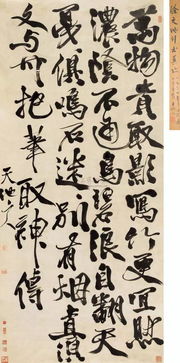 萬物貴取影寫竹更宜然
濃陰不通鳥碧浪自翻天
戛〻俱鳴石迷〻別有烟直須
文与可把筆取神傳
天池